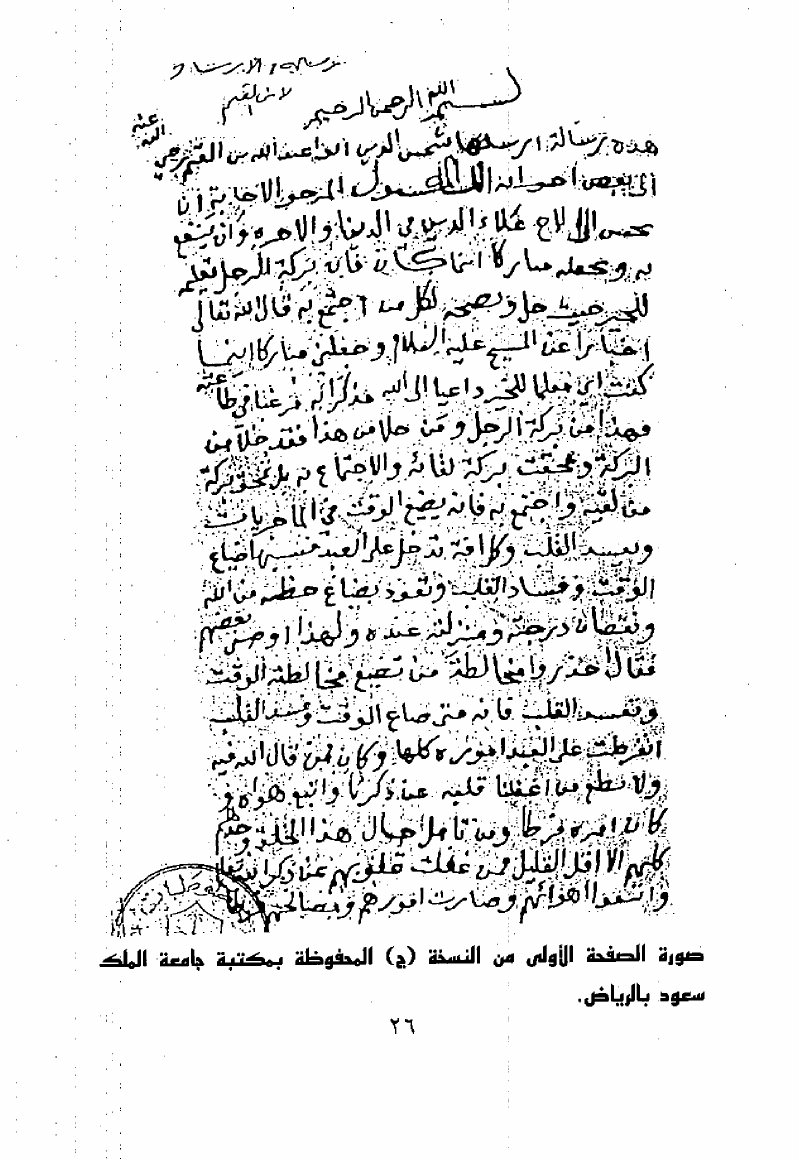 رسالة في الارشاد
لابن القيم
بسم الله الرحمن الرحيم
هذه رسالة ارسلها شمس الدين ابو عبد الله بن القيم رضي الله عنه
الى بعض اخوانه الله المسئول المرجو الاجابة ان
يحسن الى علاء الدين في الدنيا والاخرة وان ينفع
به ويجعله مباركا اينما كان فان بركة الرجل تعليمه
للخير حيث حل ونصحه لكل من اجتمع به قال الله تعالى
اخبارا عن المسيح عليه السلام وجعلني مباركا اينما
كنت اي معلما للخير داعيا الى الله مذكرا به مرغبا في طاعته
فهذا من بركة الرجل ومن خلا من هذا فقد خلا من
البركة ومحقت بركة لقائه والاجتماع به بل تمحق بركة
من لقيه واجتمع به فانه يضيع الوقت في الماجريات
ويفسد القلب وكل افة تدخل على العبد فسببها ضياع
الوقت وفساد القلب وتعود بضياع حظه من الله
ونقصان درجته ومنزلته عنده ولهذا اوصى بعضهم
فقال احذروا مخالطة من تضيع مخالطته الوقت
وتفسد القلب فانه متى ضاع الوقت وفسد القلب
انفرطت على العبد اموره كلها وكان ممن قال الله فيه
ولا تطع من اغفلنا قلبه عن ذكرنا واتبع هواه و
كان امره فرطا ومن تامل حال هذا الخلق وجدهم
كلهم الا اقل القليل ممن غفلت قلوبهم عن ذكر الله تعالى
واتبعوا اهوائهم وصارت امورهم ومصالحهم
صورة الصفحة الأولى من النسخة (ج) المحفوظة بمكتبة جامعة الملك
سعود بالرياض.
٢٦